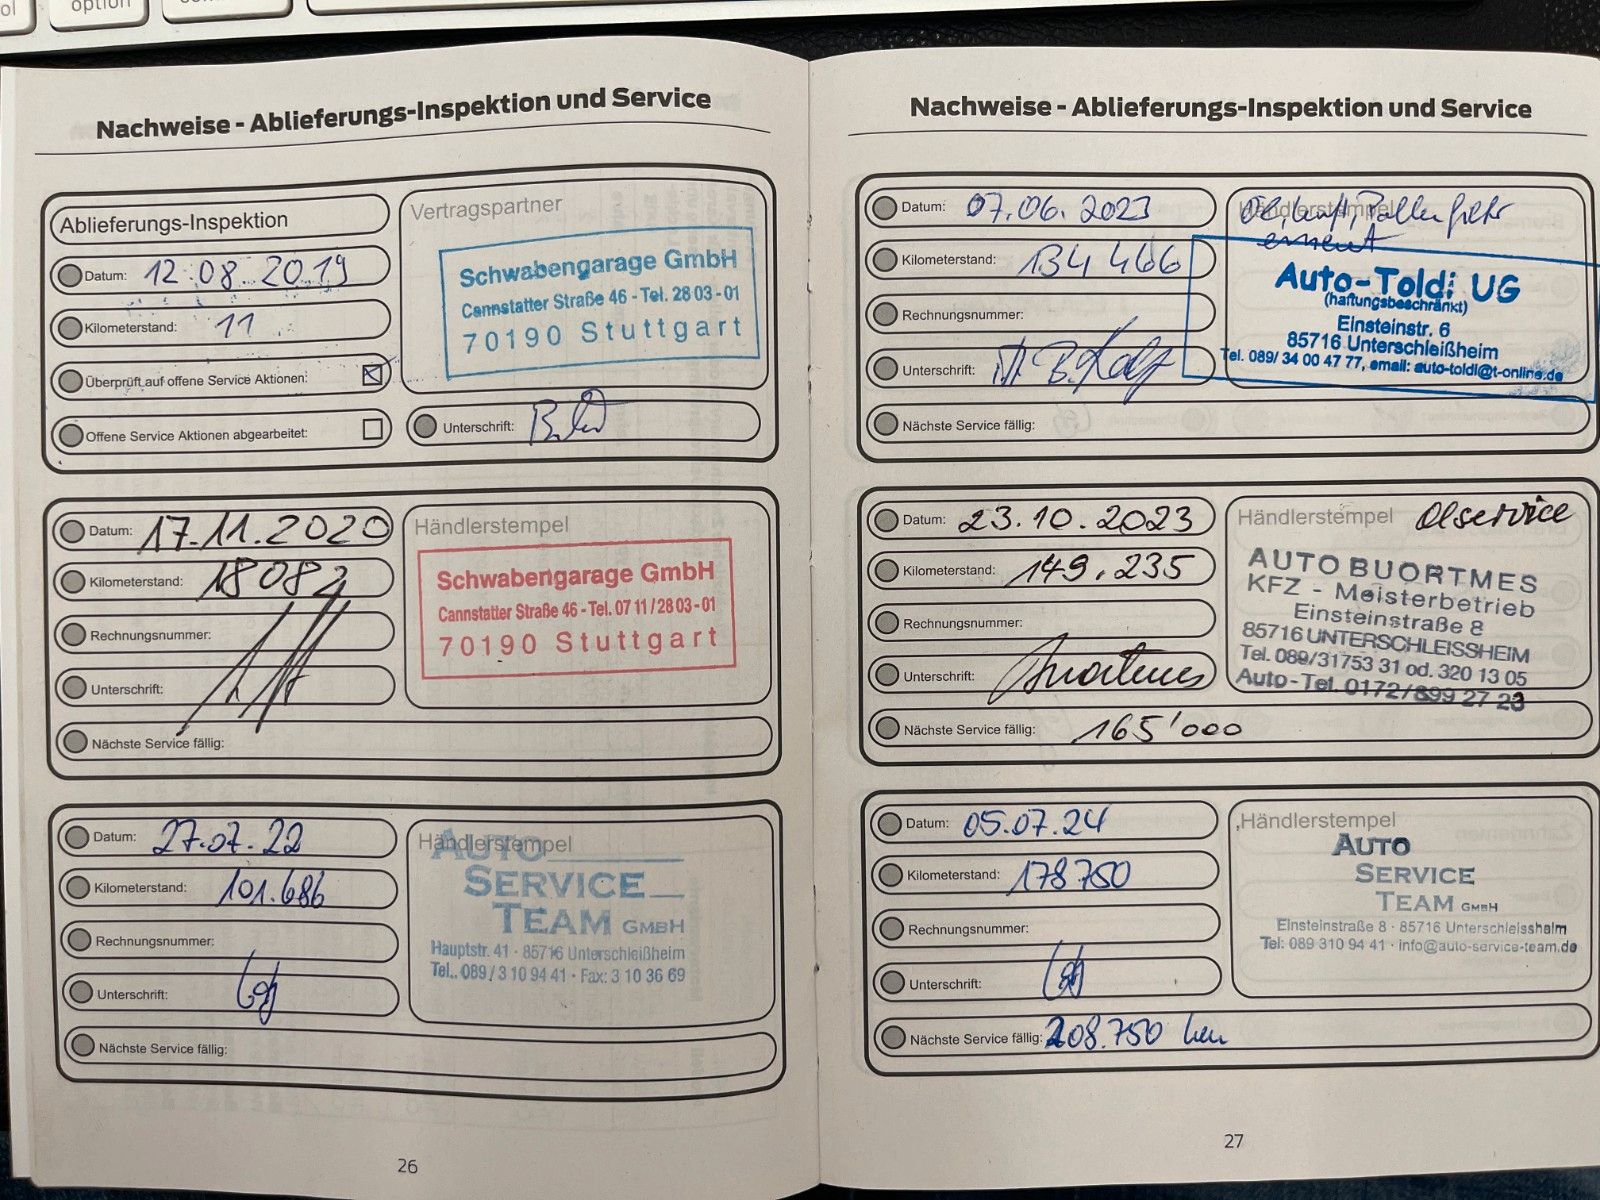 option
Nachweise - Ablieferungs-Inspektion und Service
Ablieferungs-Inspektion
Datum: 12.08.2019
Kilometerstand: 11
Überprüft auf offene Service Aktionen:
Offene Service Aktionen abgearbeitet:
Vertragspartner
Schwabengarage GmbH
Cannstatter Straße 46 - Tel. 28 03 - 01
70190 Stuttgart
Unterschrift:
Datum: 17.11.2020
Kilometerstand: 18082
Rechnungsnummer:
Unterschrift:
Nächste Service fällig:
Händlerstempel
Schwabengarage GmbH
Cannstatter Straße 46 - Tel. 07 11 / 28 03 - 01
70190 Stuttgart
Datum: 27.07.22
Kilometerstand: 101.686
Rechnungsnummer:
Unterschrift:
Nächste Service fällig:
Händlerstempel
AUTO
SERVICE
TEAM GMBH
Hauptstr. 41 · 85716 Unterschleißheim
Tel.. 089 / 3 10 94 41 · Fax: 3 10 36 69
26
Nachweise - Ablieferungs-Inspektion und Service
Datum: 07.06.2023
Kilometerstand: 134 466
Rechnungsnummer:
Unterschrift:
Nächste Service fällig:
Händlerstempel
erneut
Auto-Toldi UG
(haftungsbeschränkt)
Einsteinstr. 6
85716 Unterschleißheim
Tel. 089/ 34 00 47 77, email: auto-toldi@t-online.de
Datum: 23.10.2023
Kilometerstand: 149.235
Rechnungsnummer:
Unterschrift:
Nächste Service fällig: 165'000
Händlerstempel Ölservice
AUTO BUORTMES
KFZ - Meisterbetrieb
Einsteinstraße 8
85716 UNTERSCHLEISSHEIM
Tel. 089/31753 31 od. 320 13 05
Auto-Tel. 0172/899 27 23
Datum: 05.07.24
Kilometerstand: 178750
Rechnungsnummer:
Unterschrift:
Nächste Service fällig: 208.750 km
Händlerstempel
AUTO
SERVICE
TEAM GMBH
Einsteinstraße 8 · 85716 Unterschleissheim
Tel: 089 310 94 41 · info@auto-service-team.de
27